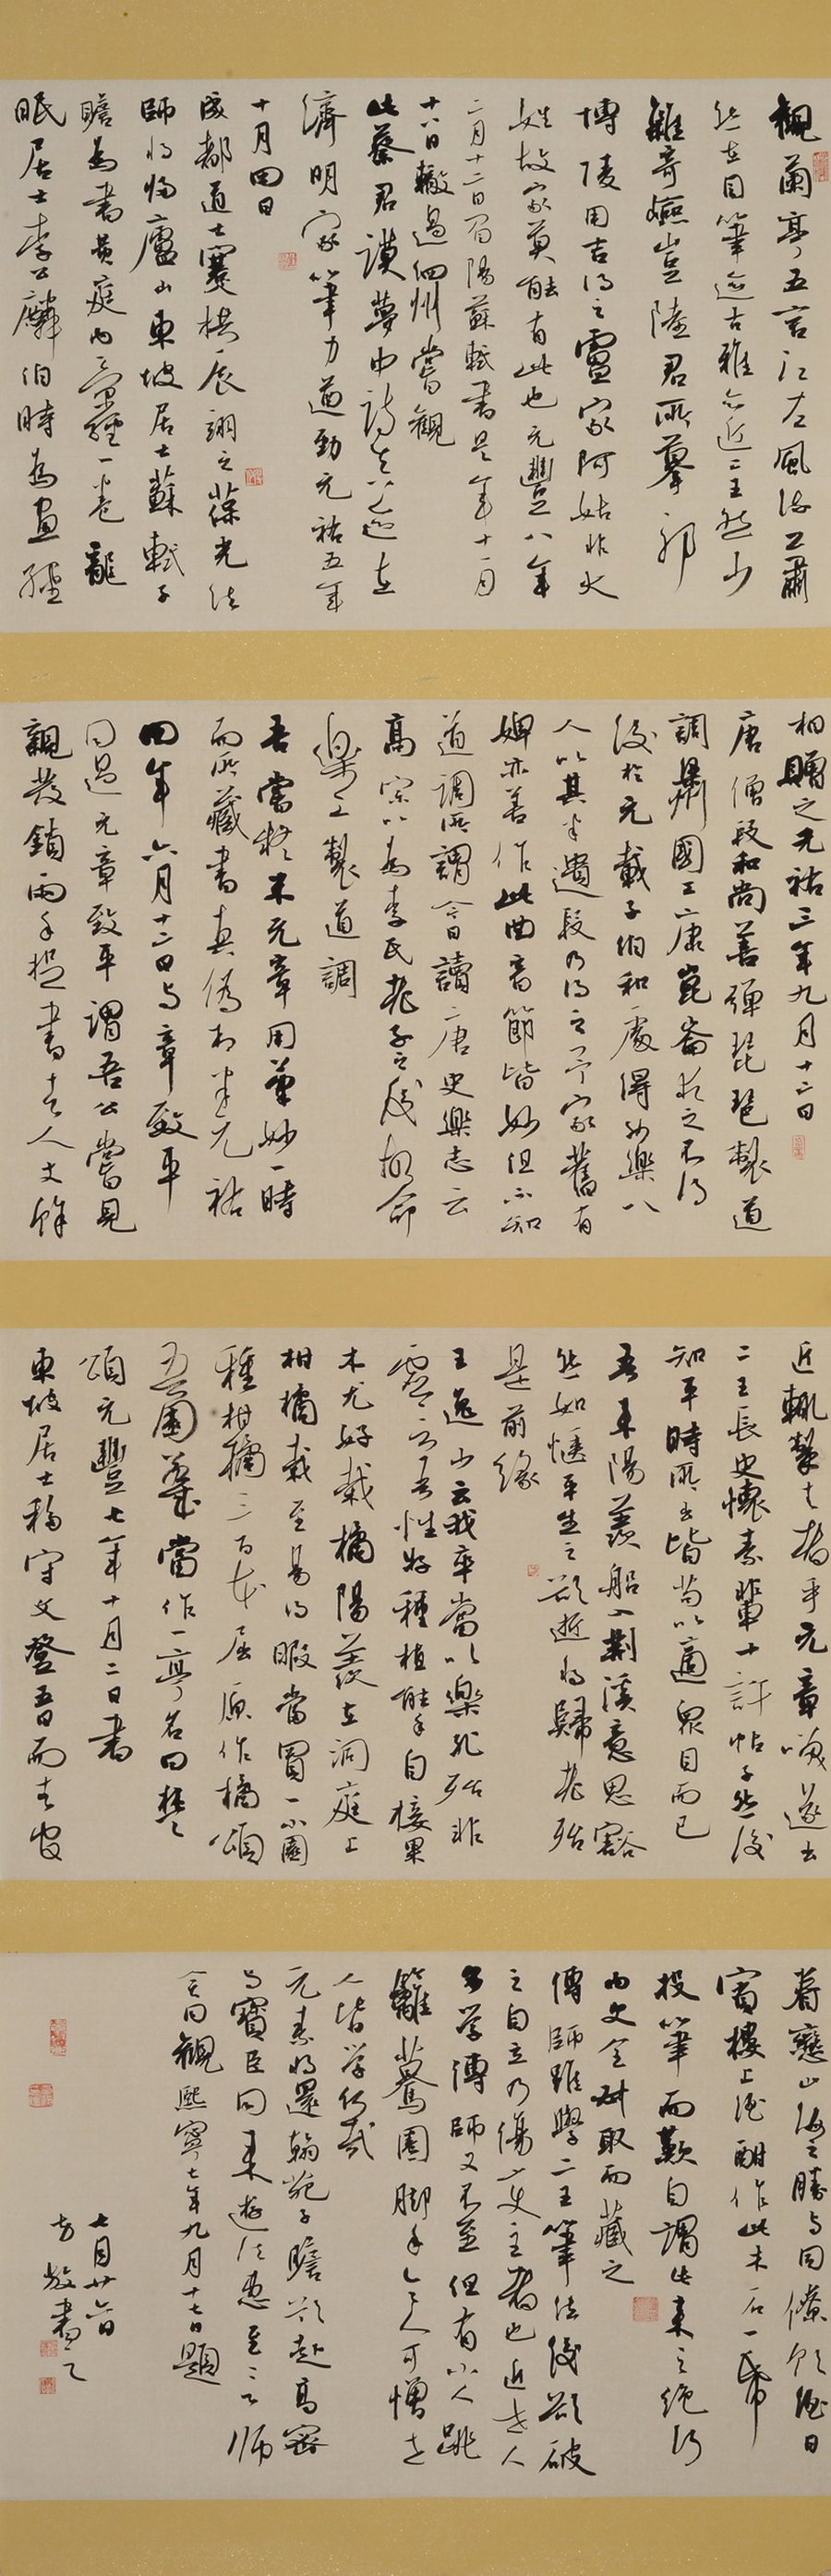 覩蘭亭五言江左風流已蕭
然在目筆迹古雅亦近二王然少
雜奇嶮豈陸君所摹耶
博陵用吉得之盧家阿姑非大
姓故家莫能有此也元豐八年
二月十二日眉陽蘇軾書是年十一月
十六日轍過泗州嘗觀
此蔡君謨夢中詩真迹在
濟明家筆力遒勁元祐五年
十月四日
成都道士蹇拱辰翊之葆光法
師將歸廬山東坡居士蘇軾子
瞻為書黃庭內景經一卷龍
眠居士李公麟伯時為畫經
相贈之元祐三年九月十二日
唐僧段和尚善彈琵琶製道
調國工康崑崙求之不得
後於元載子伯和處得女樂八
人以其半遺段乃得之予家舊有
婢亦善作此曲音節皆妙但不知
道調所謂今日讀唐史樂志云
高宗以為李氏老子之後故命
樂工製道調
吾嘗疑米元章用筆妙一時
而所藏書真偽相半元祐
四年六月十二日与章致平
同過元章致平謂吾公嘗見
親發鎖兩手捉書去人丈餘
近輒掣去者乎元章笑遂出
二王長史懷素輩十許帖子然後
知平時所出皆苟以適眾目而已
吾來陽羨船入荊溪意思豁
然如愜平生之欲逝將歸老殆
是前緣
王逸少云我卒當以樂死殆非
虛言吾性好種植能手自接果
木尤好栽橘陽羨在洞庭上
柑橘栽至易得暇當買一小園
種柑橘三百本屈原作橘頌
吾園落成當作一亭名曰楚
頌元豐七年十月二日書
東坡居士移守文登五日而去官
眷戀山海之勝与同僚飲酒日
賓樓上酒酣作此木石一紙
投筆而歎自謂此來之絕河
內史全叔取而藏之
傳師雖學二王筆法後欲破
之自立乃傷變主者也近世人
多学傳師又不至但有小人跳
籬驀圈腳手令人可憎世
人皆学何哉
元素將還翰苑子瞻欲赴高密
与寶臣同來遊法惠至言師
會同觀熙寧七年九月十七日題
七月廿六日
方放書之